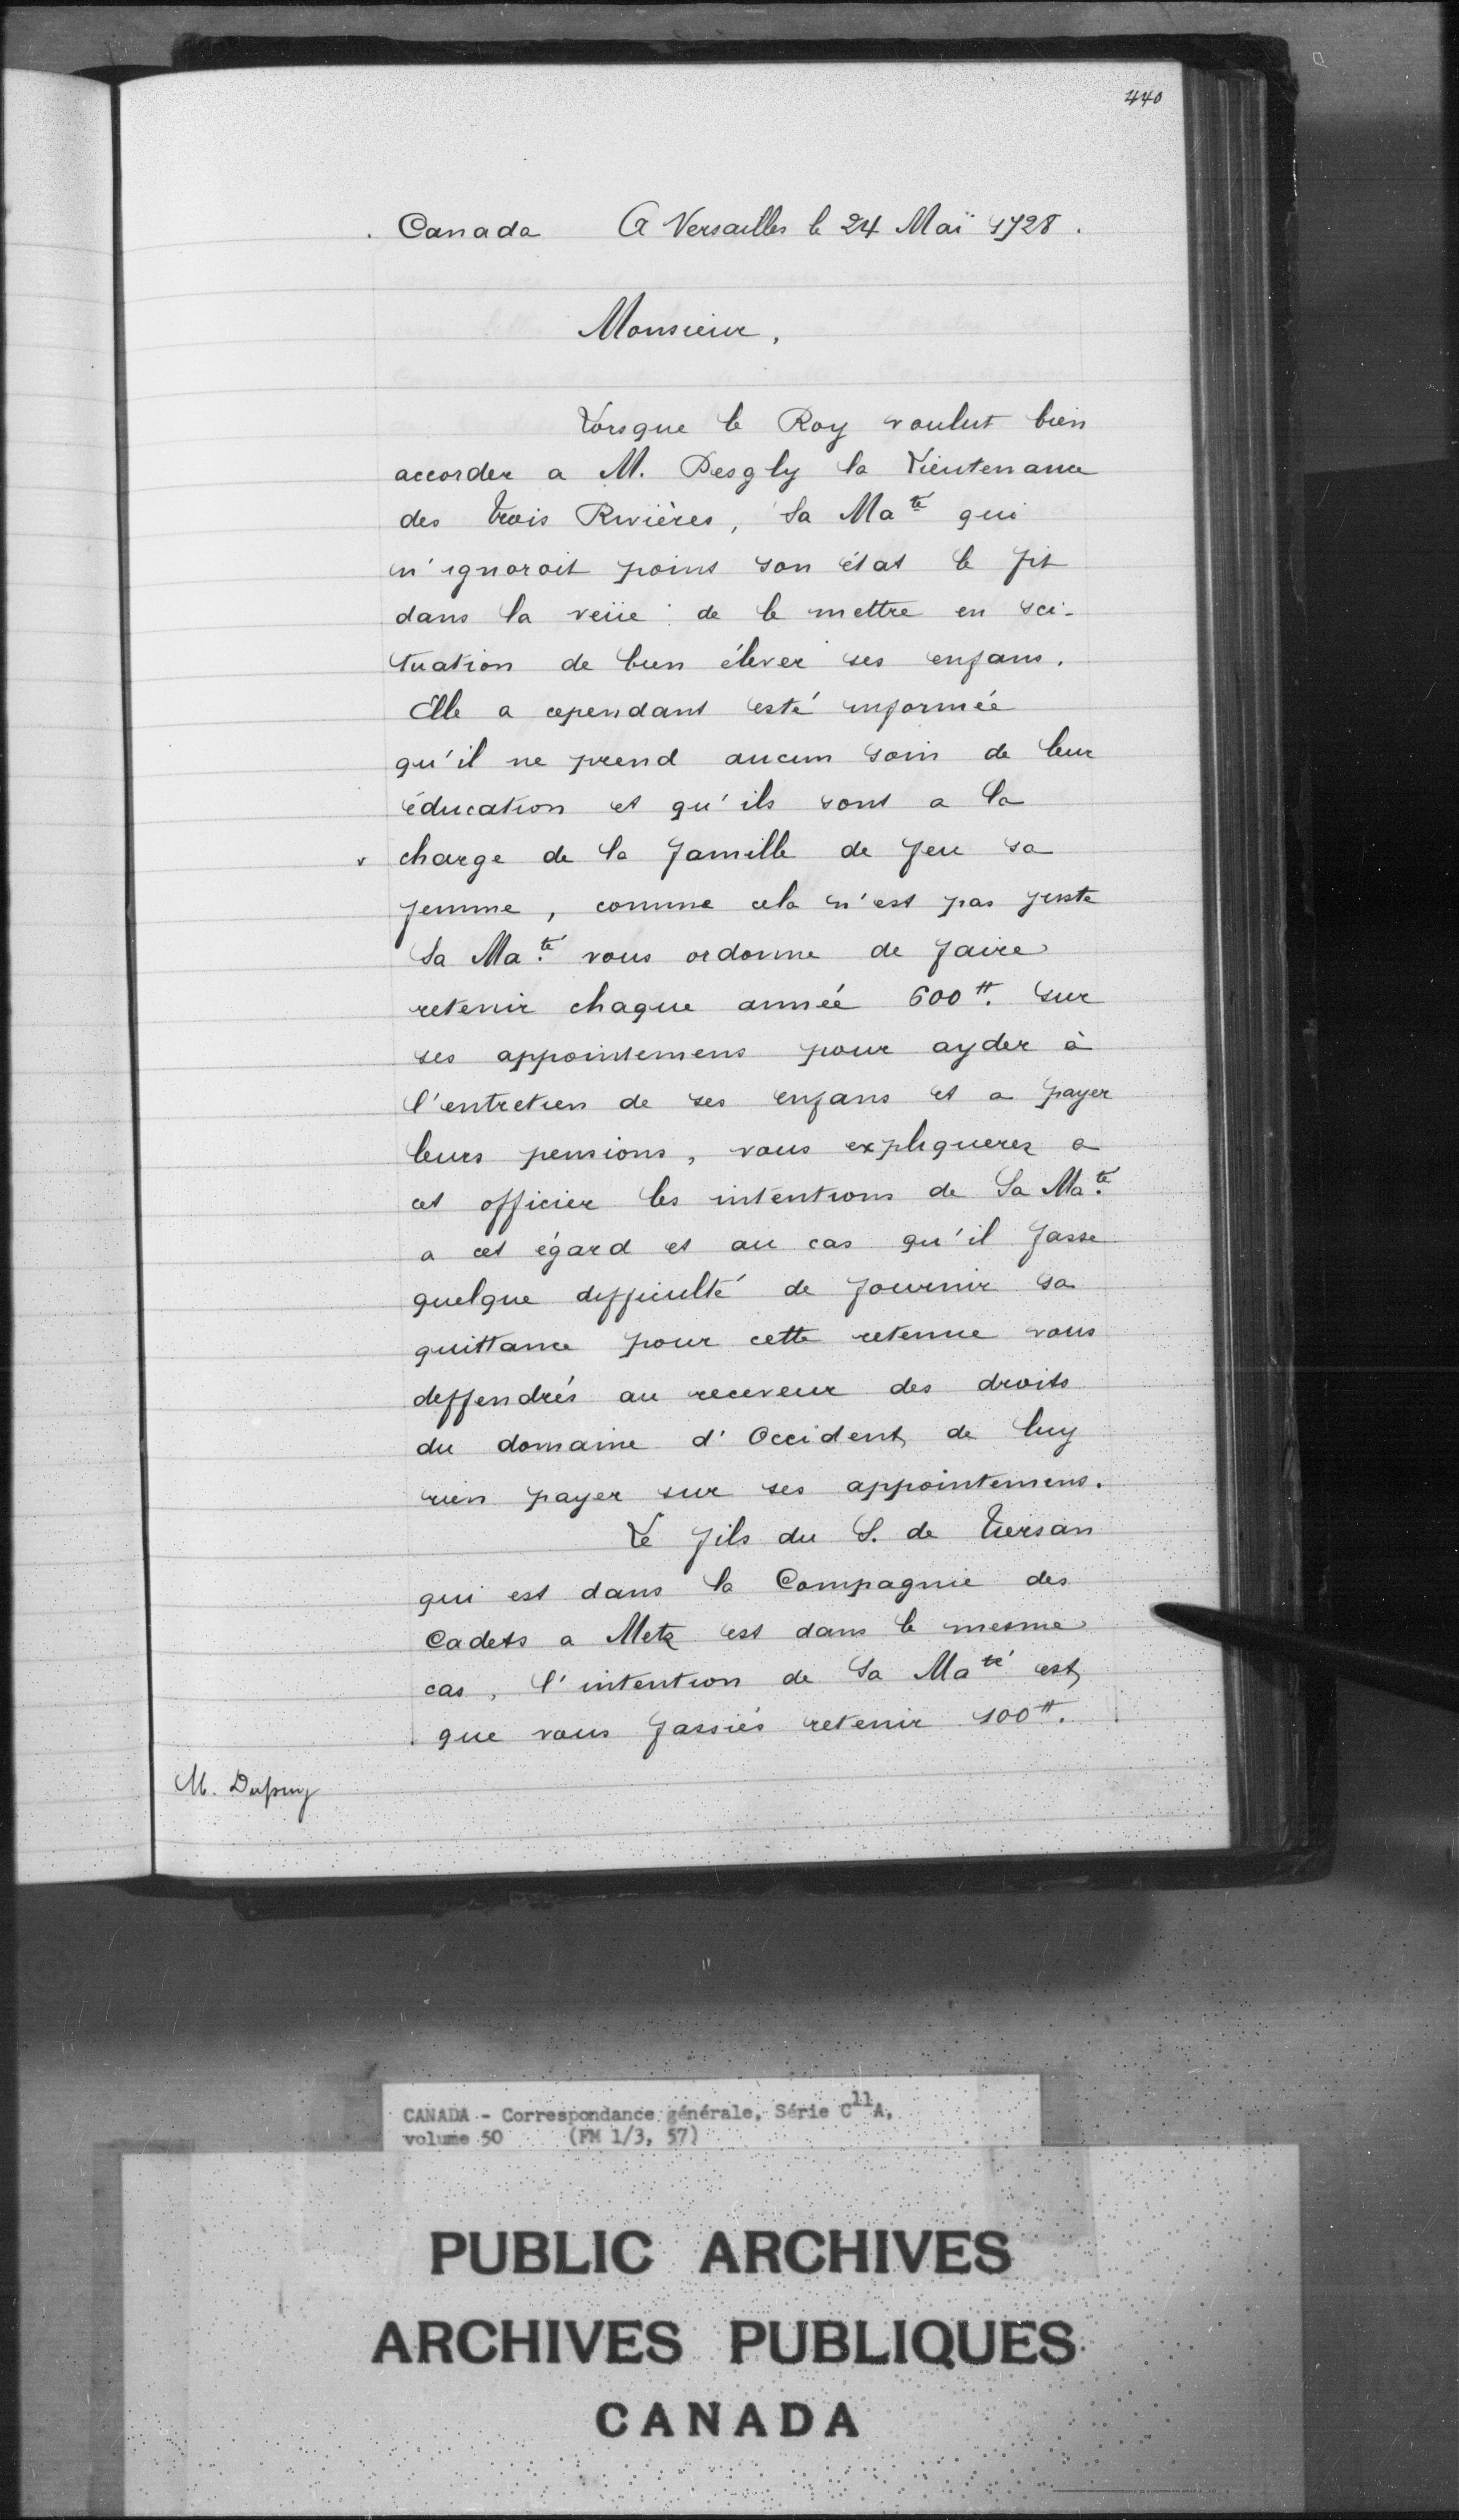 440
Canada A Versailles le 24 Maï 1728.
Monsieur,
Lorsque le Roy voulut bien
accorder a M. Desgly la Lieutenance
des trois Rivières, Sa Ma.té qui
n'ignoroit point son état le fit
dans la veüe de le mettre en sci-
tuation de bien élever ses enfans.
Elle a cependant esté informée
qu'il ne prend aucun soin de leur
éducation et qu'ils sont a la
charge de la famille de feu sa
femme, comme cela n'est pas juste
Sa Ma.té vous ordonne de faire
retenir chaque année 600tt. sur
ses appointemens pour ayder à
l'entretien de ses enfans et a payer
leurs pensions, vous expliquerez a
cet officier les intentions de Sa Ma.té
a cet égard et au cas qu'il fasse
quelque difficulté de fournir sa
quittance pour cette retenue vous
deffendrés au receveur des droits
du domaine d'Occident de luy
rien payer sur ses appointemens.
Le fils du S. de Tersan
qui est dans la Compagnie des
Cadets a Metz est dans le mesme
cas, l'intention de Sa Ma.té est
que vous fassiés retenir 100tt.
M. Dupuy
CANADA - Correspondance générale, Série C11A,
volume 50 (FM 1/3, 57)
PUBLIC ARCHIVES
ARCHIVES PUBLIQUES
CANADA